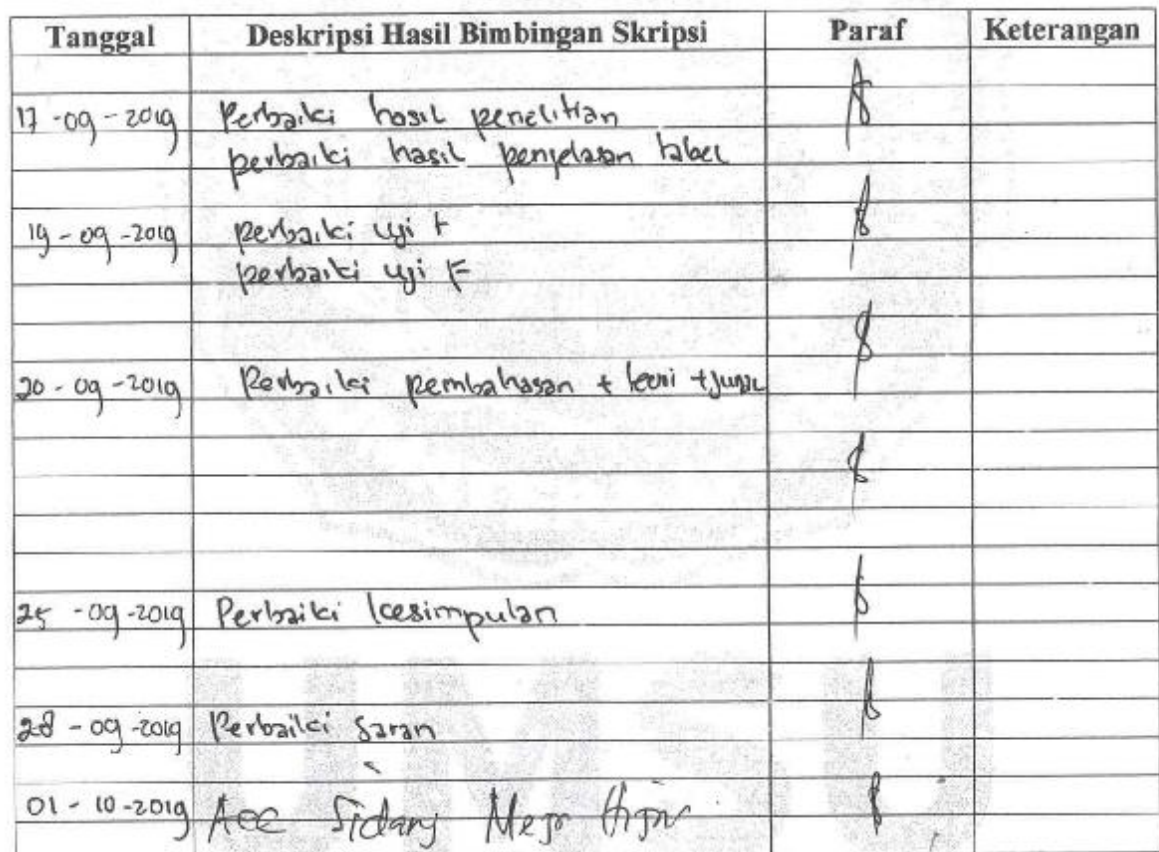 Tanggal Deskripsi Hasil Bimbingan Skripsi Paraf Keterangan
17-09-2019 Perbaiki hasil penelitian
perbaiki hasil penjelasan tabel
19-09-2019 perbaiki uji t
perbaiki uji F
20-09-2019 Perbaiki pembahasan + teori + jurnal
25-09-2019 Perbaiki kesimpulan
28-09-2019 Perbaiki saran
01-10-2019 Acc Sidang Meja Hijau
UMSU